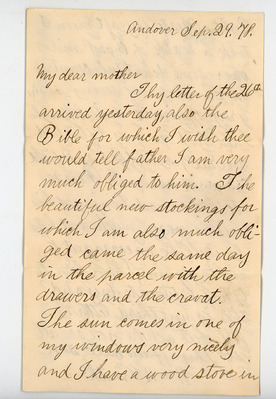 Andover Sep. 29. 78.
My dear mother
Thy letter of the 26th
arrived yesterday, also the
Bible for which I wish thee
would tell father I am very
much obliged to him. The
beautiful new stockings for
which I am also much obli-
ged came the same day
in the parcel with the
drawers and the cravat.
The sun comes in one of
my windows very nicely
and I have a wood stove in